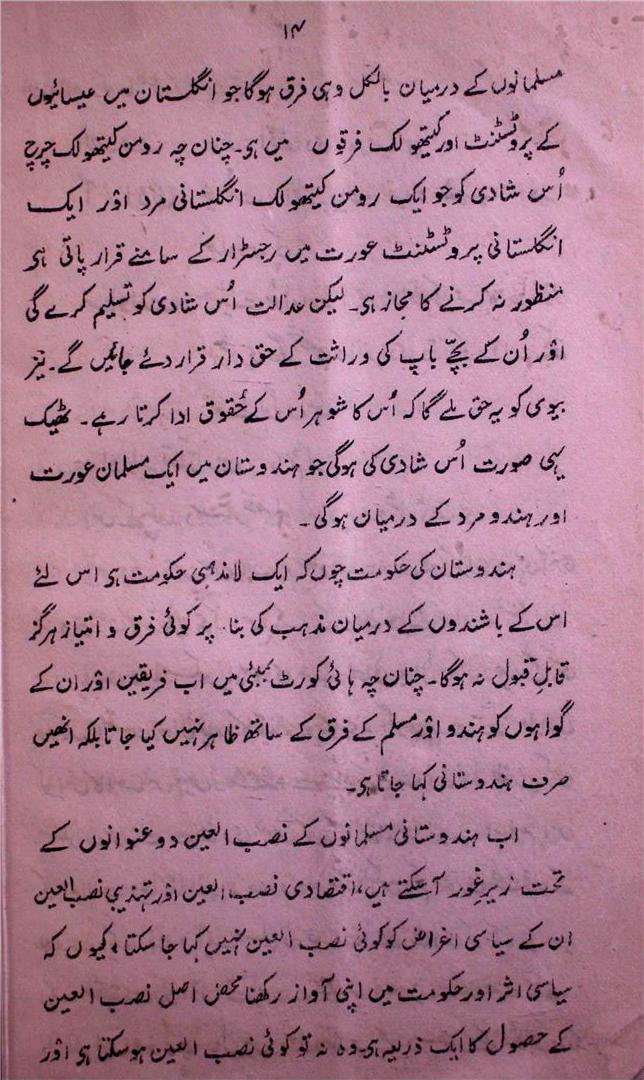 ۱۴
مسلمانوں کے درمیان بالکل وہی فرق ہوگا جو انگلستان میں عیسائیوں
کے پروٹسٹنٹ اور کیتھولک فرقوں میں ہی۔ چنان چہ رومن کیتھولک چرچ
اُس شادی کو جو ایک رومن کیتھولک انگلستانی مرد اور ایک
انگلستانی پروٹسٹنٹ عورت میں رجسٹرار کے سامنے قرار پاتی ہی
منظور نہ کرنے کا مجاز ہی۔ لیکن عدالت اُس شادی کو تسلیم کرے گی
اور اُن کے بچّے باپ کی وراثت کے حق دار قرار دئے جائیں گے۔ نیز
بیوی کو یہ حق ملے گا کہ اُس کا شوہر اُس کے حُقوق ادا کرتا رہے۔ ٹھیک
یہی صورت اُس شادی کی ہوگی جو ہندوستان میں ایک مسلمان عورت
اور ہندو مرد کے درمیان ہوگی۔
ہندوستان کی حکومت چوں کہ ایک لا مذہبی حکومت ہی اس لئے
اس کے باشندوں کے درمیان مذہب کی بنا پر کوئی فرق و امتیاز ہرگز
قابلِ قبول نہ ہوگا۔ چنان چہ ہائی کورٹ بمبئی میں اب فریقین اور ان کے
گواہوں کو ہندو اور مسلم کے فرق کے ساتھ ظاہر نہیں کیا جاتا بلکہ انھیں
صرف ہندوستانی کہا جاتا ہی۔
اب ہندوستانی مسلمانوں کے نصب العین دو عنوانوں کے
تحت زیرِ غور آسکتے ہیں، اقتصادی نصب العین اور تہذیبی نصب العین
ان کے سیاسی اغراض کو کوئی نصب العین نہیں کہا جا سکتا، کیوں کہ
سیاسی اثر اور حکومت میں اپنی آواز رکھنا محض اصل نصب العین
کے حصول کا ایک ذریعہ ہی۔ وہ نہ تو کوئی نصب العین ہوسکتا ہی اور